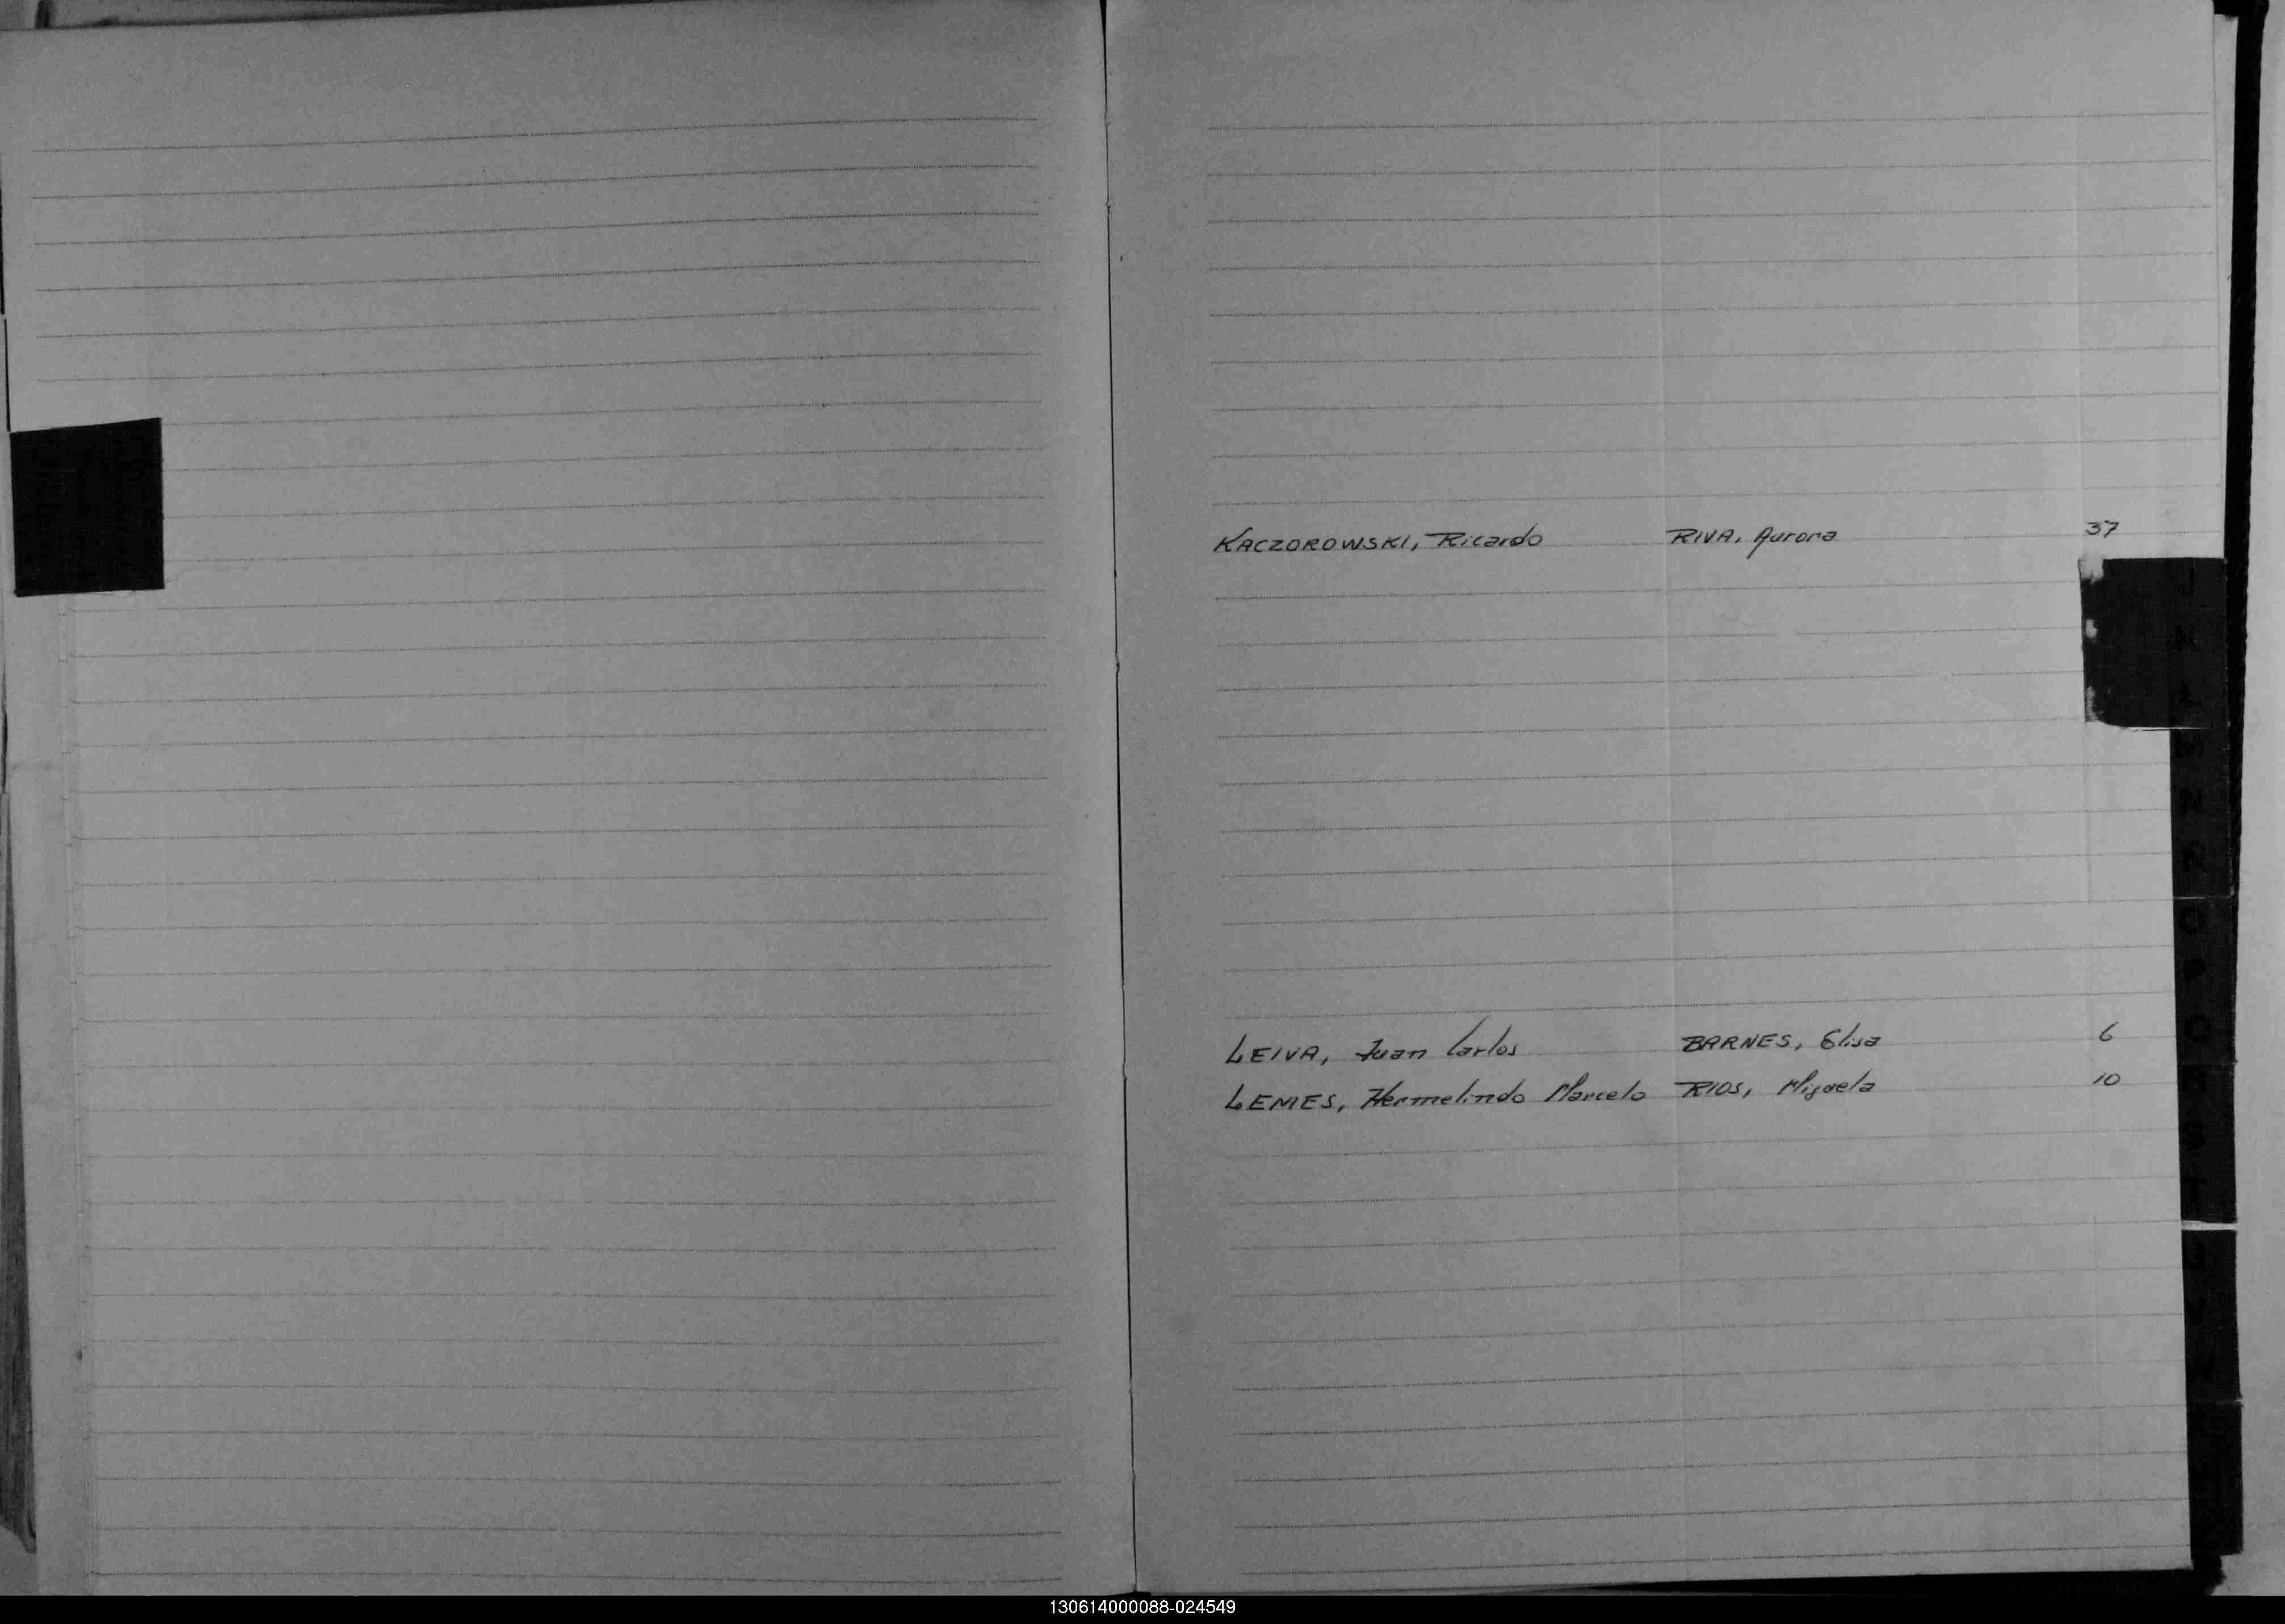 KACZOROWSKI, Ricardo RIVA, Aurora 37
LEIVA, Juan Carlos BARNES, Elisa 6
LEMES, Hermelindo Marcelo RIOS, Miguela 10
130614000088-024549